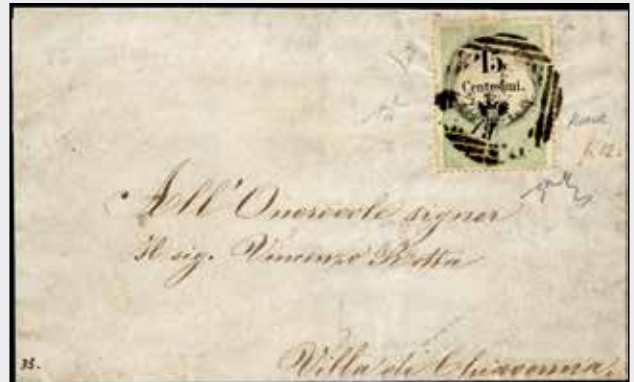 15
Centesimi.
All'Onorevole signor
Il sig. Vincenzo Rotta
Villa di Chiavenna.
35.